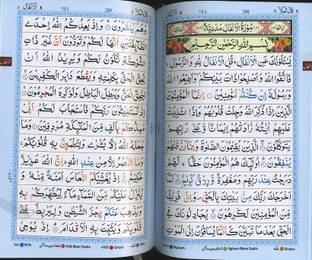 سُوْرَةُ الْاَنْفَالِ مَدَنِيَّةٌ
بِسْمِ اللّٰهِ الرَّحْمٰنِ الرَّحِيْمِ
يَسْـَٔلُوْنَكَ عَنِ الْاَنْفَالِ قُلِ الْاَنْفَالُ لِلّٰهِ وَالرَّسُوْلِ
فَاتَّقُوا اللّٰهَ وَاَصْلِحُوْا ذَاتَ بَيْنِكُمْ وَاَطِيْعُوا اللّٰهَ
وَرَسُوْلَهٗۤ اِنْ كُنْتُمْ مُّؤْمِنِيْنَ اِنَّمَا الْمُؤْمِنُوْنَ
الَّذِيْنَ اِذَا ذُكِرَ اللّٰهُ وَجِلَتْ قُلُوْبُهُمْ وَاِذَا تُلِيَتْ
عَلَيْهِمْ اٰيٰتُهٗ زَادَتْهُمْ اِيْمَانًا وَّعَلٰى رَبِّهِمْ يَتَوَكَّلُوْنَ
الَّذِيْنَ يُقِيْمُوْنَ الصَّلٰوةَ وَمِمَّا رَزَقْنٰهُمْ
يُنْفِقُوْنَ اُولٰٓئِكَ هُمُ الْمُؤْمِنُوْنَ حَقًّا لَهُمْ
دَرَجٰتٌ عِنْدَ رَبِّهِمْ وَمَغْفِرَةٌ وَّرِزْقٌ كَرِيْمٌ
كَمَاۤ اَخْرَجَكَ رَبُّكَ مِنْۢ بَيْتِكَ بِالْحَقِّ وَاِنَّ فَرِيْقًا
مِّنَ الْمُؤْمِنِيْنَ لَكٰرِهُوْنَ يُجَادِلُوْنَكَ فِي
الْحَقِّ بَعْدَ مَا تَبَيَّنَ كَاَنَّمَا يُسَاقُوْنَ اِلَى الْمَوْتِ
وَهُمْ يَنْظُرُوْنَ وَاِذْ يَعِدُكُمُ اللّٰهُ اِحْدَى
الطَّآئِفَتَيْنِ اَنَّهَا لَكُمْ وَتَوَدُّوْنَ اَنَّ غَيْرَ ذَاتِ
الشَّوْكَةِ تَكُوْنُ لَكُمْ وَيُرِيْدُ اللّٰهُ اَنْ
يُّحِقَّ الْحَقَّ بِكَلِمٰتِهٖ وَيَقْطَعَ دَابِرَ الْكٰفِرِيْنَ
لِيُحِقَّ الْحَقَّ وَيُبْطِلَ الْبَاطِلَ وَلَوْ كَرِهَ الْمُجْرِمُوْنَ
اِذْ تَسْتَغِيْثُوْنَ رَبَّكُمْ فَاسْتَجَابَ لَكُمْ اَنِّيْ
مُمِدُّكُمْ بِاَلْفٍ مِّنَ الْمَلٰٓئِكَةِ مُرْدِفِيْنَ وَمَا
جَعَلَهُ اللّٰهُ اِلَّا بُشْرٰى وَلِتَطْمَئِنَّ بِهٖ قُلُوْبُكُمْ
وَمَا النَّصْرُ اِلَّا مِنْ عِنْدِ اللّٰهِ اِنَّ اللّٰهَ عَزِيْزٌ
حَكِيْمٌ اِذْ يُغَشِّيْكُمُ النُّعَاسَ اَمَنَةً مِّنْهُ وَ
يُنَزِّلُ عَلَيْكُمْ مِّنَ السَّمَآءِ مَآءً لِّيُطَهِّرَكُمْ بِهٖ
وَيُذْهِبَ عَنْكُمْ رِجْزَ الشَّيْطٰنِ وَلِيَرْبِطَ عَلٰى
قُلُوْبِكُمْ وَيُثَبِّتَ بِهِ الْاَقْدَامَ اِذْ يُوْحِيْ